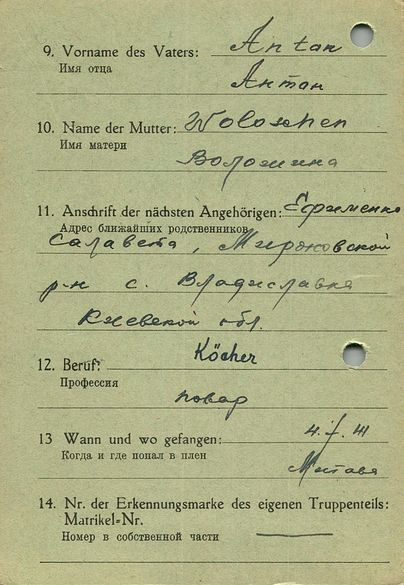 9. Vorname des Vaters: Antan
Имя отца
Антан
10. Name der Mutter: Woloschen
Имя матери
Волошина
11. Anschrift der nächsten Angehörigen: Ефименко
Адрес ближайших родственников
Салавета, Мироновской
р-н с. Владиславка
Киевской обл.
12. Beruf: Köcher
Профессия
повар
13 Wann und wo gefangen: 4.7.41
Когда и где попал в плен
14. Nr. der Erkennungsmarke des eigenen Truppenteils:
Matrikel-Nr.
Номер в собственной части